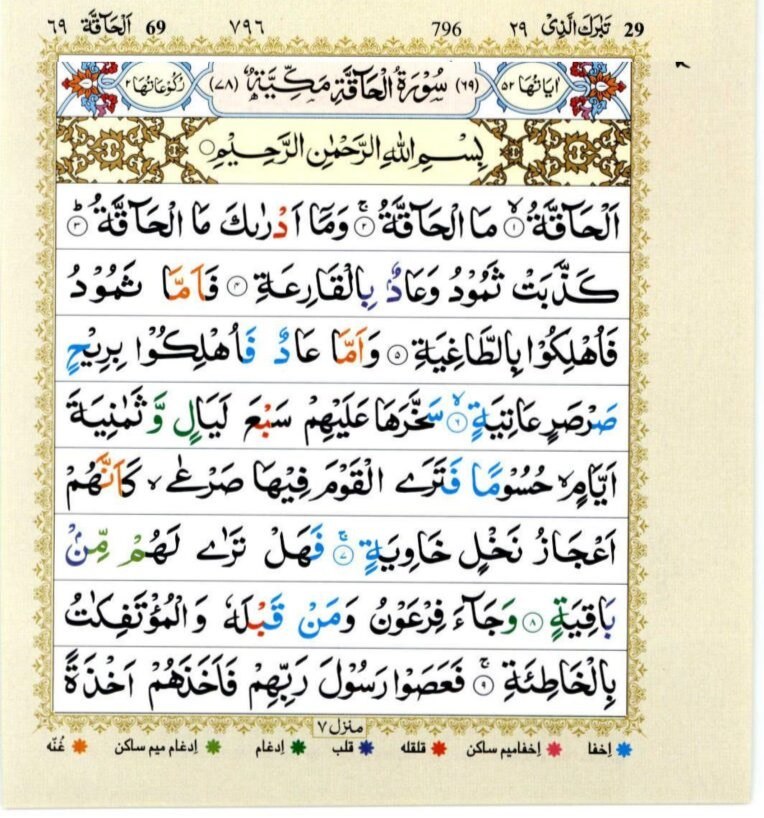 29 تَبٰرَكَ الَّذِیْ ٢٩ 796 ٧٩٦ 69 اَلْحَآقَّة ٦٩
اٰيَاتُهَا ٥٢ (٦٩) سُوْرَةُ الْحَآقَّةِ مَكِّيَّةٌ (٧٨) رُكُوْعَاتُهَا ٢
بِسْمِ اللّٰهِ الرَّحْمٰنِ الرَّحِيْمِ
اَلْحَآقَّةُ ۙ‏ ١ مَا الْحَآقَّةُ ۚ‏ ٢ وَمَاۤ اَدْرٰىكَ مَا الْحَآقَّةُ ؕ‏ ٣
كَذَّبَتْ ثَمُوْدُ وَعَادٌۢ بِالْقَارِعَةِ ٤ فَاَمَّا ثَمُوْدُ
فَاُهْلِكُوْا بِالطَّاغِيَةِ ٥ وَاَمَّا عَادٌ فَاُهْلِكُوْا بِرِيْحٍ
صَرْصَرٍ عَاتِيَةٍ ۙ‏ ٦ سَخَّرَهَا عَلَيْهِمْ سَبْعَ لَيَالٍ وَّثَمٰنِيَةَ
اَيَّامٍ ۙ حُسُوْمًا فَتَرَى الْقَوْمَ فِيْهَا صَرْعٰى ۙ كَاَنَّهُمْ
اَعْجَازُ نَخْلٍ خَاوِيَةٍ ۚ‏ ٧ فَهَلْ تَرٰى لَهُمْ مِّنْۢ
بَاقِيَةٍ ٨ وَجَآءَ فِرْعَوْنُ وَمَنْ قَبْلَهٗ وَالْمُؤْتَفِكٰتُ
بِالْخَاطِئَةِ ۚ‏ ٩ فَعَصَوْا رَسُوْلَ رَبِّهِمْ فَاَخَذَهُمْ اَخْذَةً
منزل ٧
اِخفا اِخفامیم ساکن قلقله قلب اِدغام اِدغام میم ساکن غُنّه